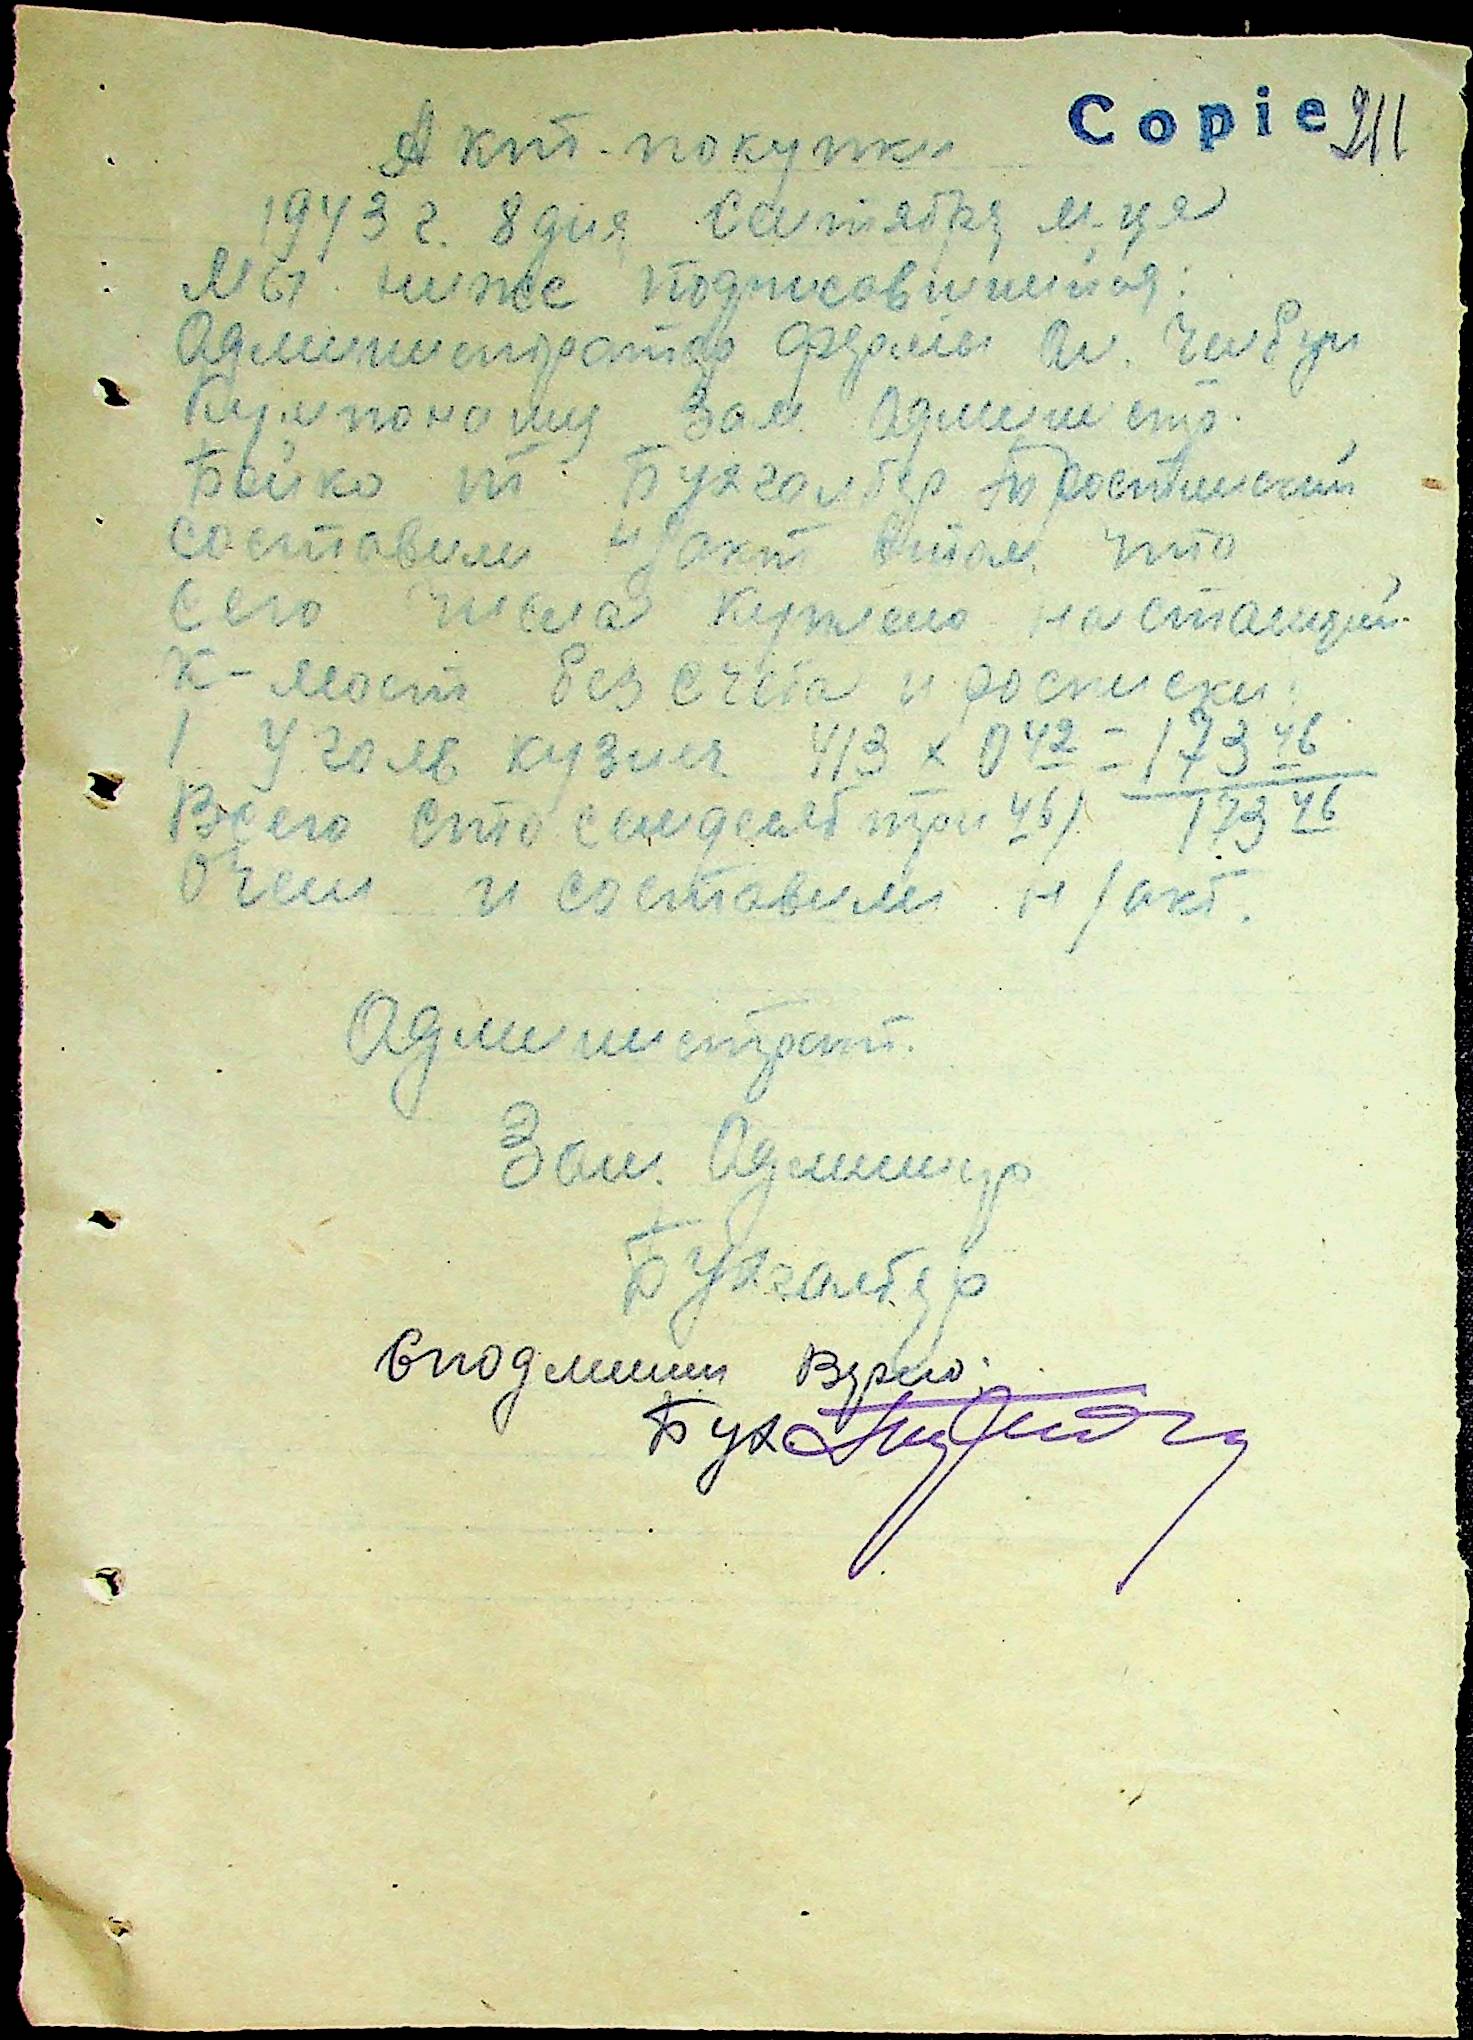 Copie 211
Акт покупки
1943 г. 8 дня Сентября м-ця
Мы ниже подписавшийся:
Администратор фермы
Зам. Админстр.
Бойко т. Бухгалтер
составили н/акт втом, что
сего числа куплено на станции
К-мост без счета и росписки:
1 Уголь кузня 413 х 0 42 = 173 46
Всего сто семдесят три 46/ 173 46
Очем и составили н/акт.
Администрат.
Зам. Админстр
Бухгалтер
Сподлиним Верно:
Бух